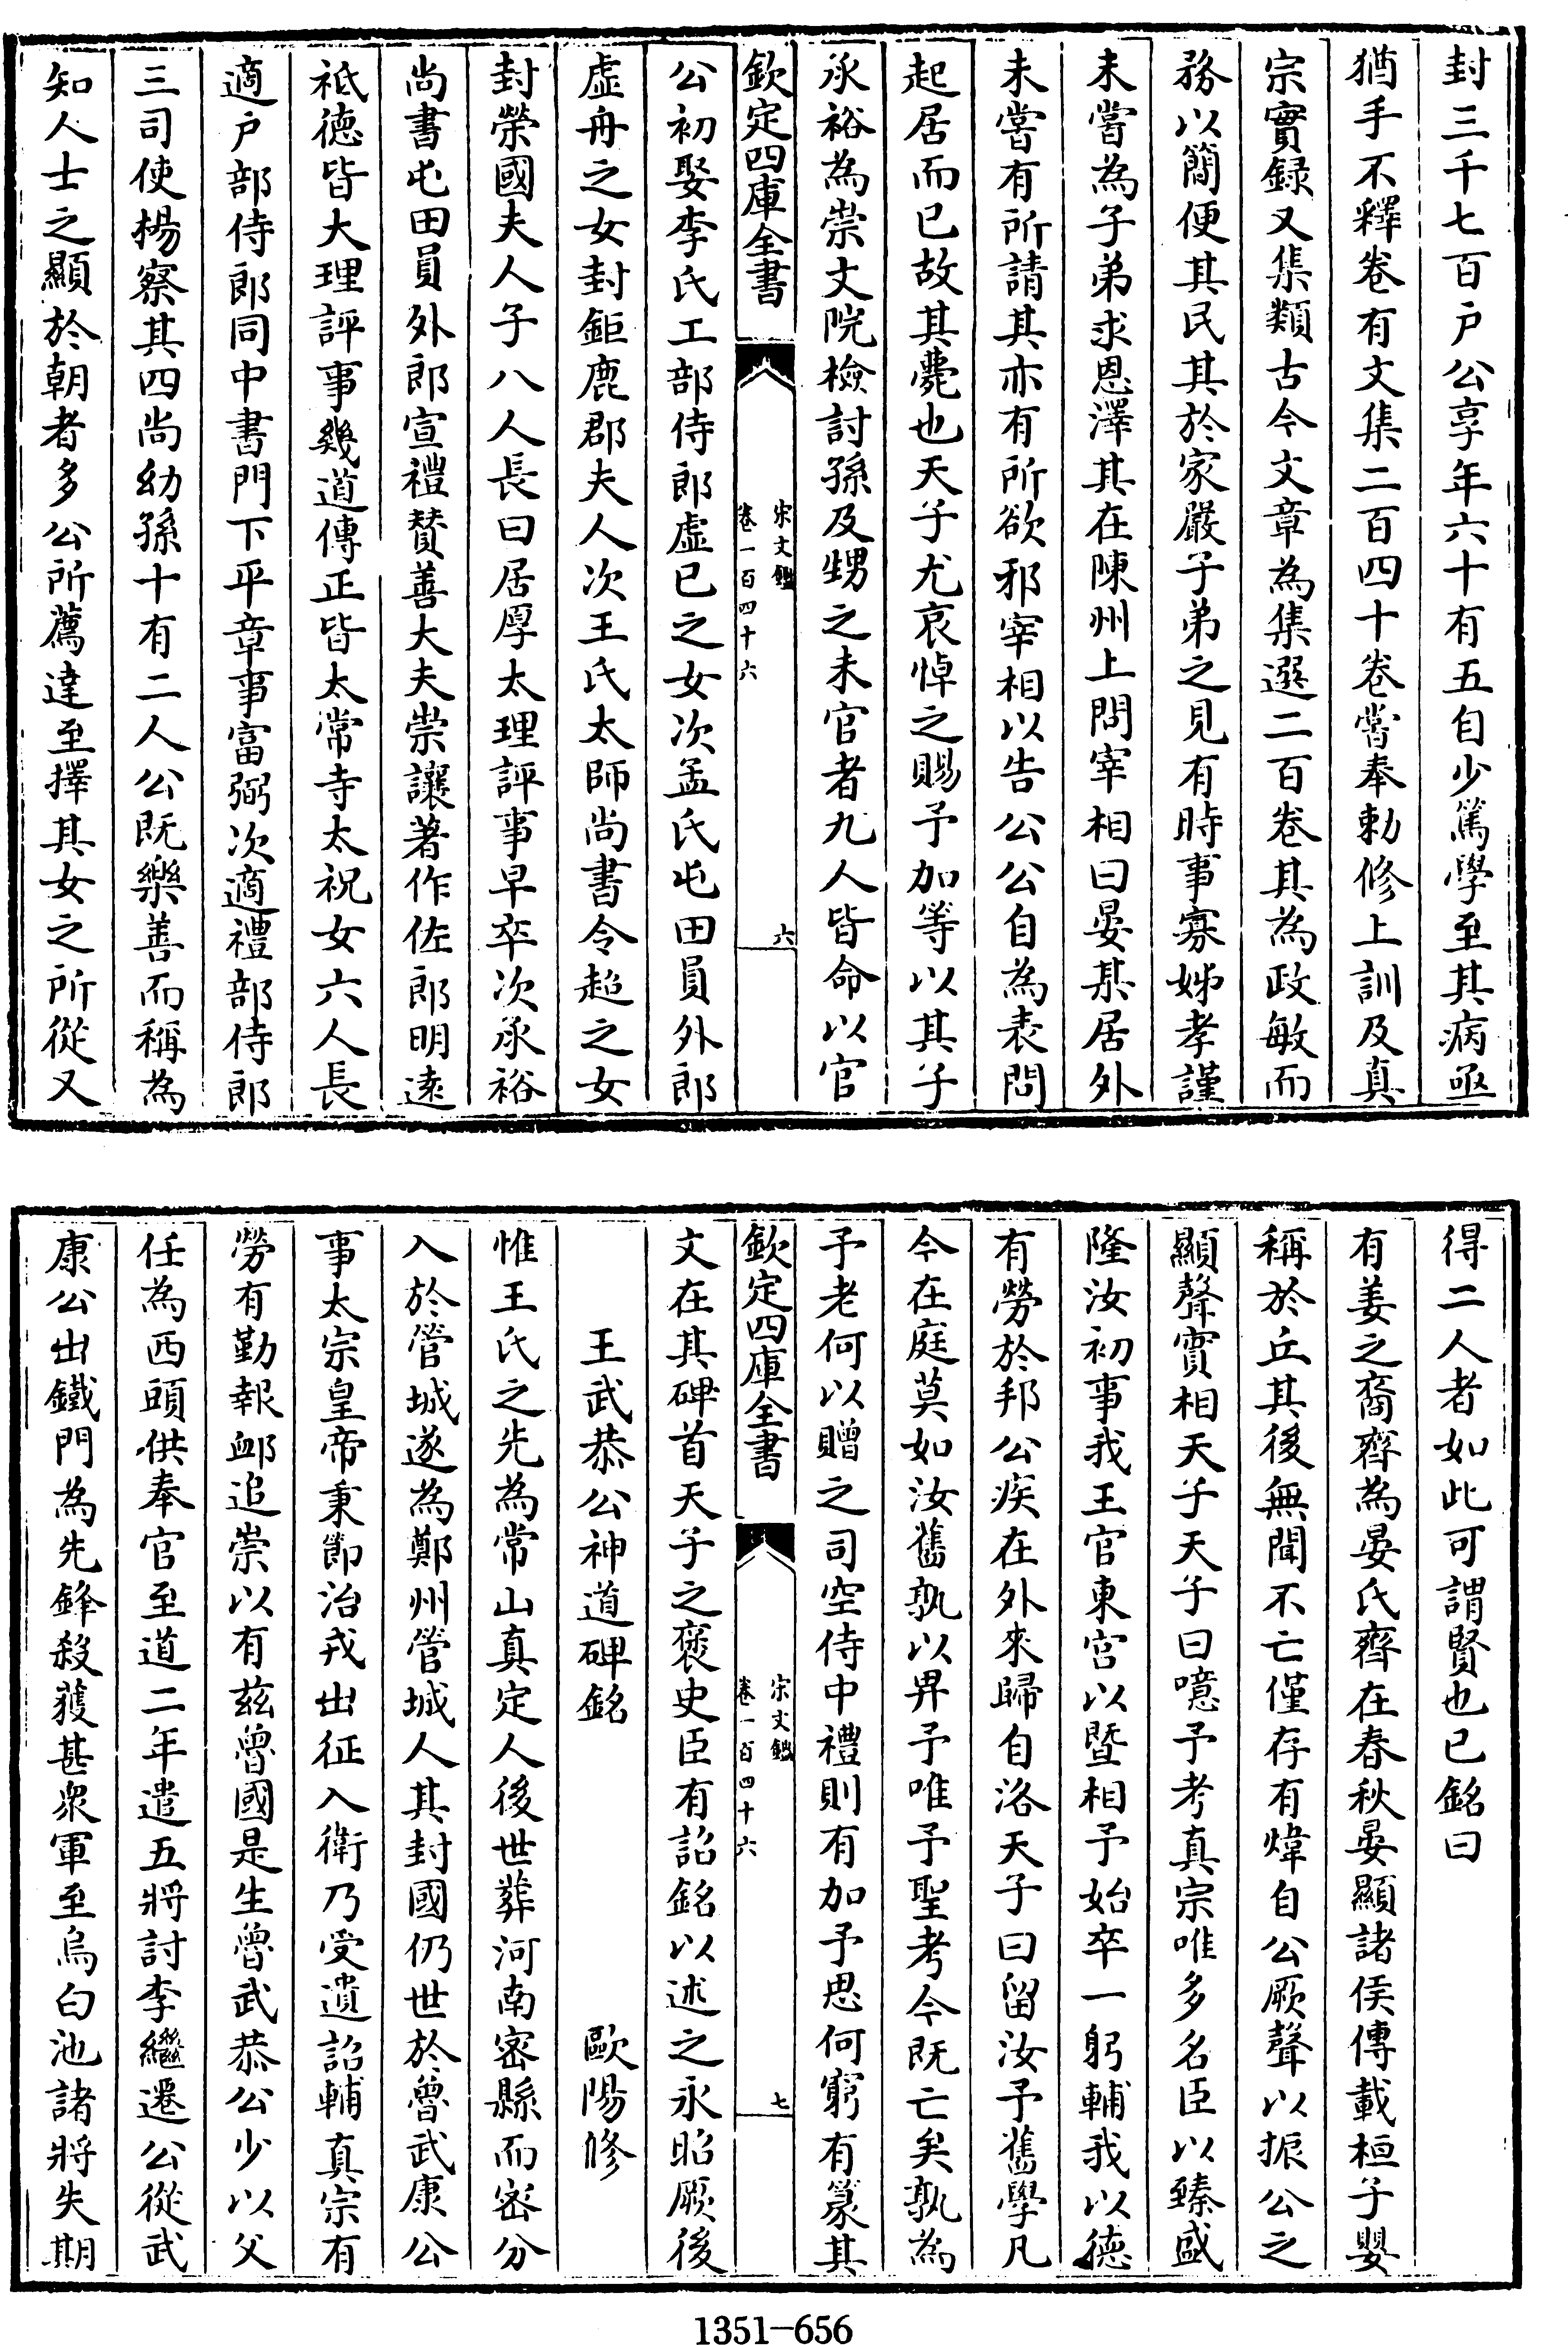 封三千七百户公享年六十有五自少篤學至其病亟
猶手不釋卷有文集二百四十卷嘗奉勅修上訓及真
宗實録又集類古今文章為集選二百卷其為政敏而
務以簡便其民其於家嚴子弟之見有時事寡姊孝謹
未嘗為子弟求恩澤其在陳州上問宰相曰晏某居外
未嘗有所請其亦有所欲邪宰相以告公公自為表問
起居而已故其薨也天子尤哀悼之賜予加等以其子
承裕為崇文院檢討孫及甥之未官者九人皆命以官
欽定四庫全書
宋文鑑
卷一百四十六
六
公初娶李氏工部侍郎虚已之女次孟氏屯田員外郎
虚舟之女封鉅鹿郡夫人次王氏太師尚書令超之女
封榮國夫人子八人長曰居厚太理評事早卒次承裕
尚書屯田員外郎宣禮贊善大夫崇讓著作佐郎明逺
祗德皆大理評事幾道傳正皆太常寺太祝女六人長
適户部侍郎同中書門下平章事富弼次適禮部侍郎
三司使楊察其四尚幼孫十有二人公既樂善而稱為
知人士之顯於朝者多公所薦達至擇其女之所從又
得二人者如此可謂賢也已銘曰
有姜之裔齊為晏氏齊在春秋晏顯諸侯傳載桓子嬰
稱於丘其後無聞不亡僅存有煒自公厥聲以振公之
顯聲實相天子天子曰噫予考真宗唯多名臣以臻盛
隆汝初事我王官東宫以暨相予始卒一躬輔我以德
有勞於邦公疾在外來歸自洛天子曰留汝予舊學凡
今在庭莫如汝舊孰以畀予唯予聖考今既亡矣孰為
予老何以贈之司空侍中禮則有加予思何窮有篆其
欽定四庫全書
宋文鑑
卷一百四十六
七
文在其碑首天子之褒史臣有詔銘以述之永昭厥後
王武恭公神道碑銘 歐陽修
惟王氏之先為常山真定人後世葬河南密縣而密分
入於管城遂為鄭州管城人其封國仍世於魯武康公
事太宗皇帝秉節治戎出征入衛乃受遺詔輔真宗有
勞有勤報䘏追崇以有兹魯國是生魯武恭公少以父
任為西頭供奉官至道二年遣五將討李繼遷公從武
康公出鐵門為先鋒殺獲甚衆軍至烏白池諸將失期
1351-656